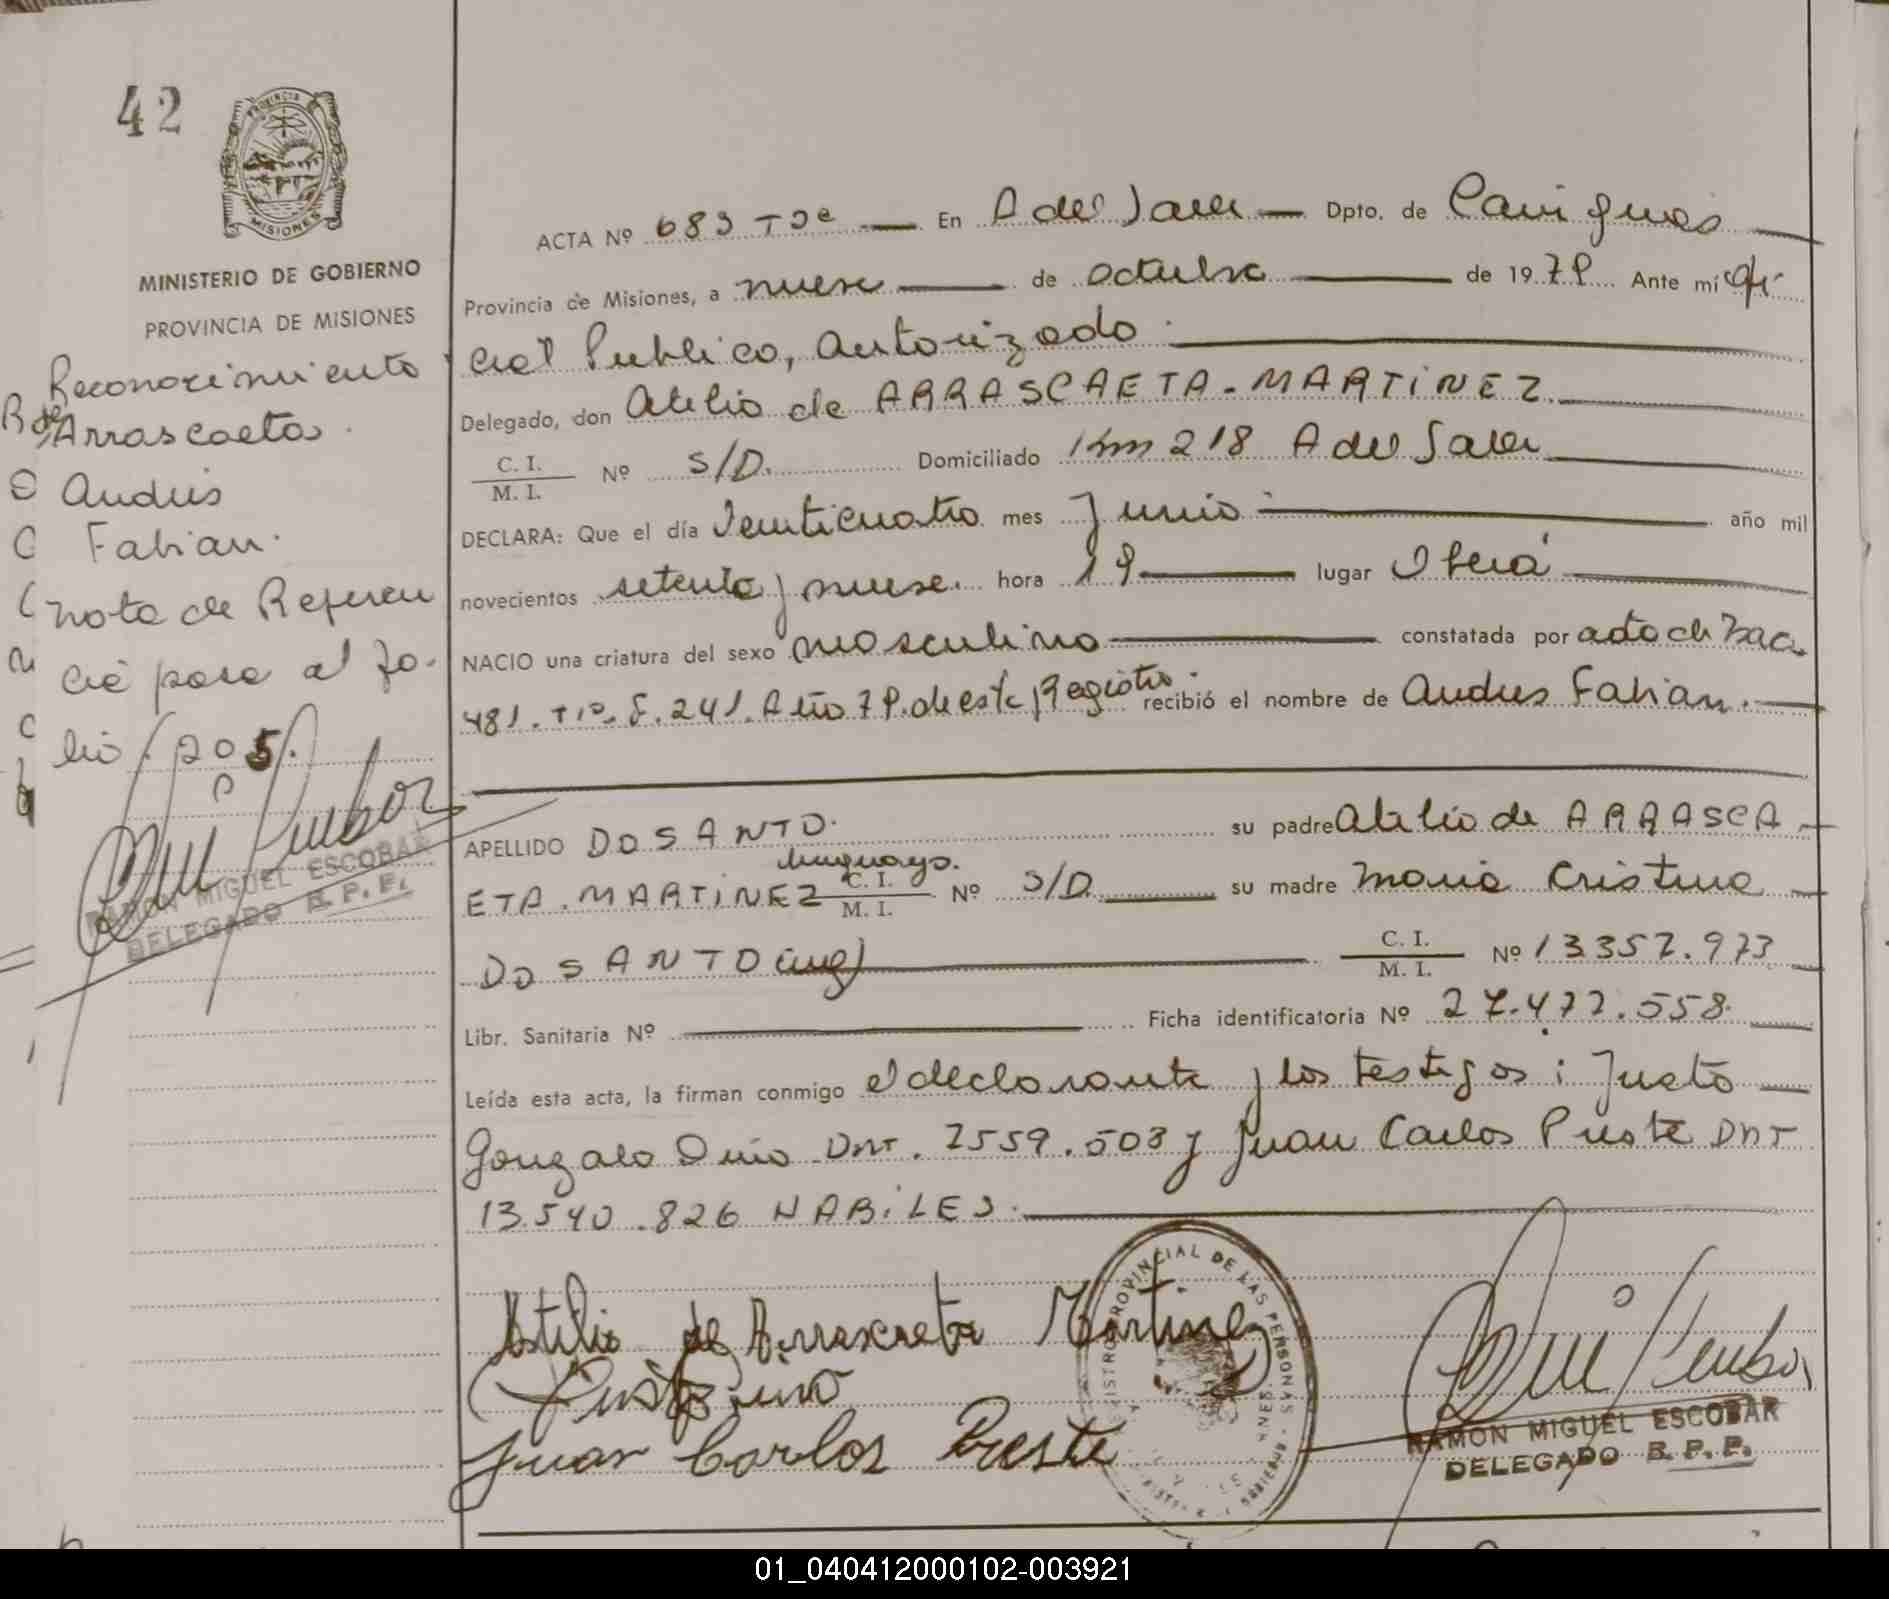 42
PROVINCIA
MISIONES
MINISTERIO DE GOBIERNO
PROVINCIA DE MISIONES
Reconocimiento
de
Arrascaeta
Andres
Fabian.
nota de Referen
cia para al fo-
lio 205.
RAMON MIGUEL ESCOBAR
DELEGADO R. P. P.
ACTA Nº 683 T 2º En A del Valle Dpto. de Cainguas
Provincia de Misiones, a nueve de octubre de 1979. Ante mí Ofi-
cial Publico, autorizado.
Delegado, don Atilio de ARRASCAETA-MARTINEZ.
C. I.
M. I. Nº S/D. Domiciliado Km 218 A del Valle
DECLARA: Que el día Veinticuatro mes Junio año mil
novecientos setenta y nueve. hora 19 lugar Oberá
NACIO una criatura del sexo masculino constatada por acta de Nac.
481. Tº 1º. F. 241. Año 79. de este Registro. recibió el nombre de Andres Fabian.
APELLIDO DOSANTO. su padre Atilio de ARRASCA
uruguayo.
ETA. MARTINEZ C. I.
M. I. Nº S/D. su madre Maria Cristina
DOSANTO (arg) C. I.
M. I. Nº 13.357.973
Libr. Sanitaria Nº Ficha identificatoria Nº 27.477.558.
Leída esta acta, la firman conmigo el declarante y los testigos: Justo
Gonzalo DNI. 7559.503 y Juan Carlos Preste DNI
13.540.826 HABILES.
Atilio de Arrascaeta Martinez
Juan Carlos Preste
REGISTRO PROVINCIAL DE LAS PERSONAS
RAMON MIGUEL ESCOBAR
DELEGADO R. P. P.
01_040412000102-003921